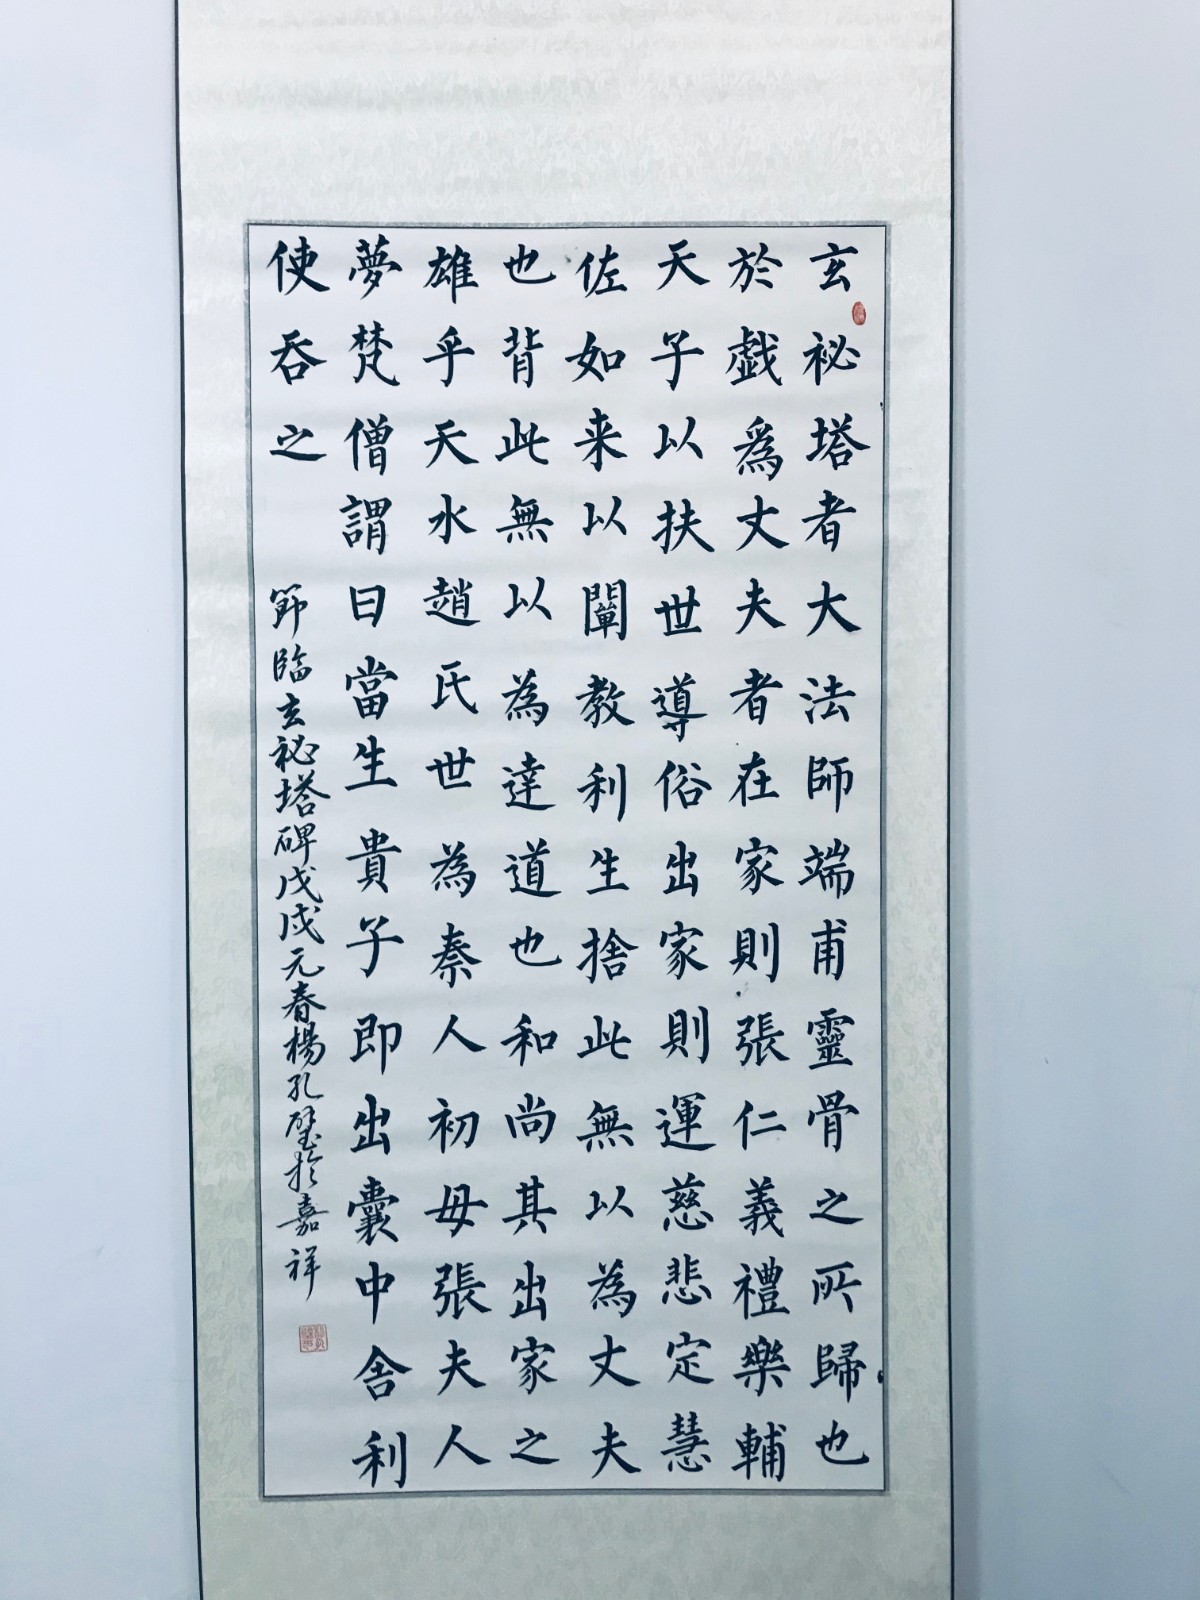 玄祕塔者大法師端甫靈骨之所歸也
於戯爲丈夫者在家則張仁義禮樂輔
天子以扶世導俗出家則運慈悲定慧
佐如来以闡教利生捨此無以為丈夫
也背此無以為達道也和尚其出家之
雄乎天水趙氏世為秦人初母張夫人
夢梵僧謂曰當生貴子即出囊中舍利
使吞之
節臨玄祕塔碑戊戌元春楊孔璧於嘉祥